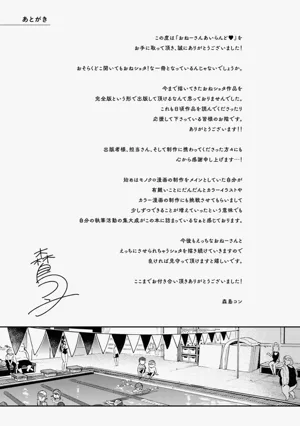 あとがき
この度は「おねーさんあいらんど♥」を
お手に取って頂き、誠にありがとうございます！
おそらくどこ開いてもおねショタ！な一冊となっているんじゃないでしょうか。
今まで描いてきたおねショタ作品を
完全版という形で出版して頂けるなんて思っておりませんでした。
これも日頃作品を読んでくださったり
応援して下さっている皆様のお陰です。
ありがとうございます！！
出版者様、担当さん、そして制作に携わってくださった方々にも
心から感謝申し上げます…！
始めはモノクロ漫画の制作をメインとしていた自分が
有難いことにだんだんとカラーイラストや
カラー漫画の制作にも挑戦させてもらいまして
少しずつできることが増えていったという意味でも
自分の執筆活動の集大成がこの本に詰まっているなぁと感じております。
今後もえっちなおねーさんと
えっちにさせられちゃうショタを描き続けていきますので
良ければ見守って頂けますと嬉しいです。
ここまでお付き合い頂きありがとうございました！
森島コン
森島コン